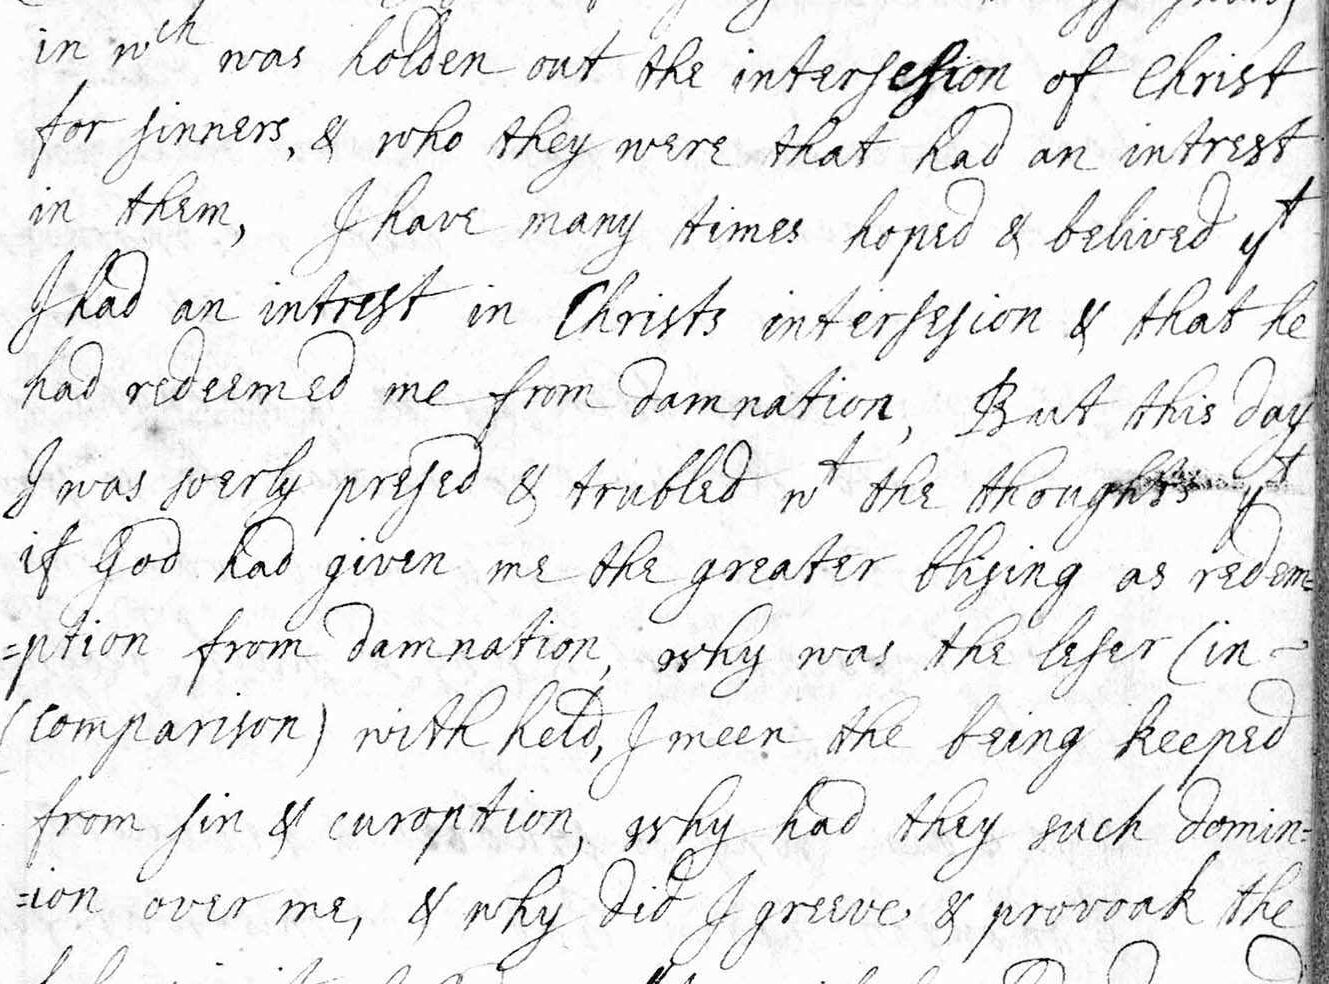 in wch was holden out the intersesion of Christ
for sinners, & who they were that had an intrest
in them, I have many times hoped & belived yt
I had an intrest in Christs intersesion & that he
had redeemed me from damnation, But this day
I was soerly presed & trubled wt the thoughts yt
if God had given me the greater blising as redem=
=ption from damnation, why was the leser (in -
(comparison) with held, I meen the being keeped
from sin & curoption, why had they such domin=
=ion over me, & why did I greeve & provoak the